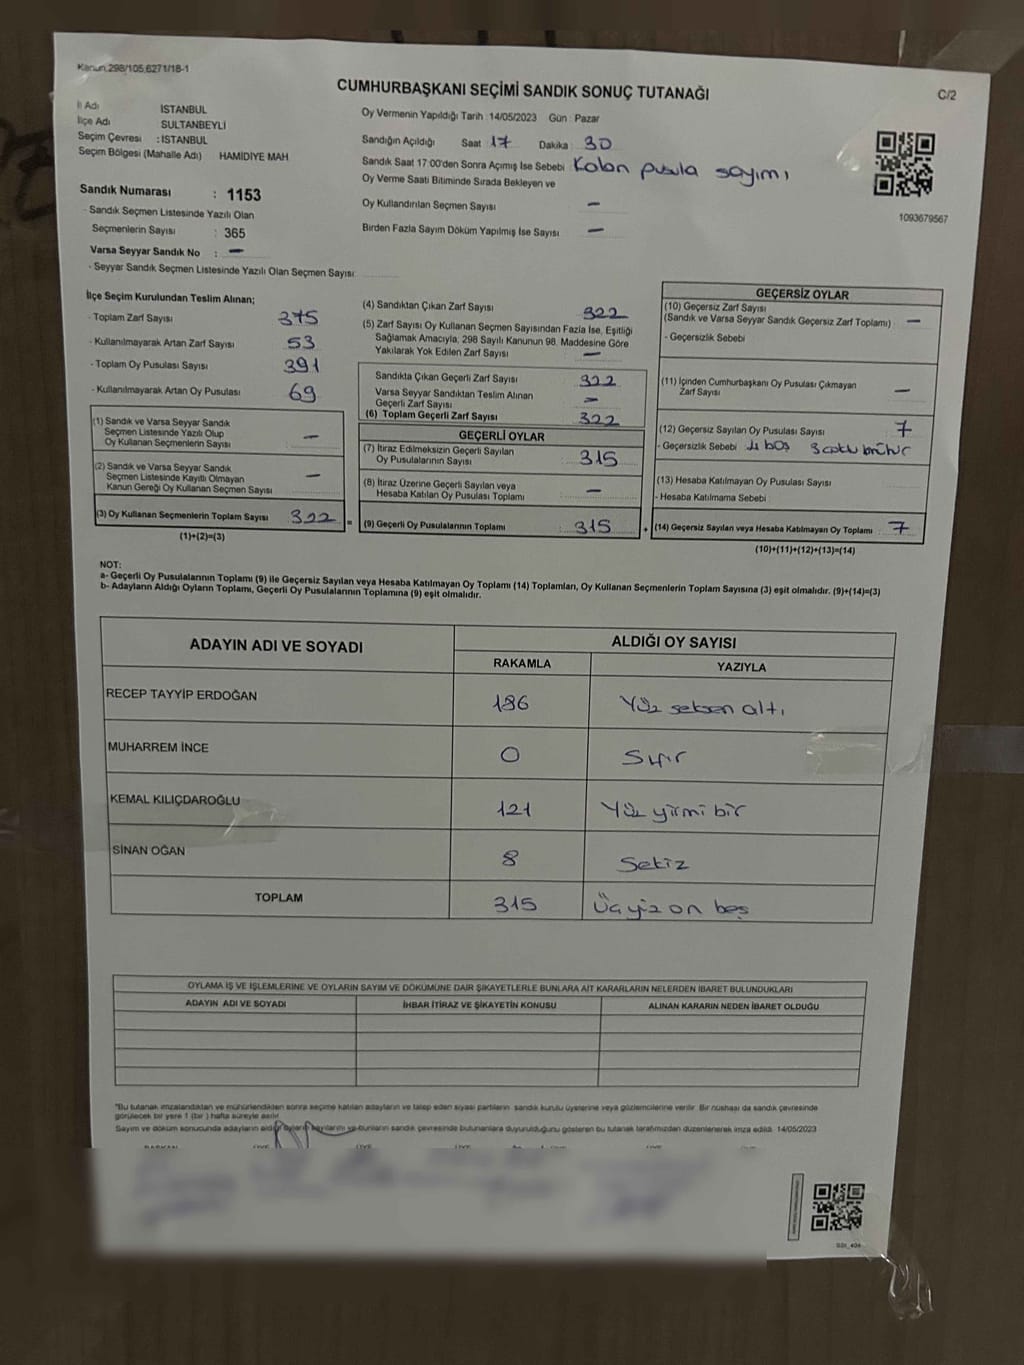 Kanun 298/105,6271/18-1
CUMHURBAŞKANI SEÇİMİ SANDIK SONUÇ TUTANAĞI
C/2
İl Adı İSTANBUL
İlçe Adı SULTANBEYLİ
Seçim Çevresi : İSTANBUL
Seçim Bölgesi (Mahalle Adı) HAMİDİYE MAH
Oy Vermenin Yapıldığı Tarih : 14/05/2023 Gün : Pazar
Sandığın Açıldığı Saat 17 Dakika 30
Sandık Saat 17:00'den Sonra Açımış İse Sebebi Kalan pusula sayımı
Oy Verme Saati Bitiminde Sırada Bekleyen ve
Oy Kullandırılan Seçmen Sayısı –
Birden Fazla Sayım Döküm Yapılmış İse Sayısı –
1093679567
Sandık Numarası : 1153
- Sandık Seçmen Listesinde Yazılı Olan
Seçmenlerin Sayısı : 365
Varsa Seyyar Sandık No : –
- Seyyar Sandık Seçmen Listesinde Yazılı Olan Seçmen Sayısı:
İlçe Seçim Kurulundan Teslim Alınan;
- Toplam Zarf Sayısı 375
- Kullanılmayarak Artan Zarf Sayısı 53
- Toplam Oy Pusulası Sayısı 391
- Kullanılmayarak Artan Oy Pusulası 69
(1) Sandık ve Varsa Seyyar Sandık
Seçmen Listesinde Yazılı Olup
Oy Kullanan Seçmenlerin Sayısı –
(2) Sandık ve Varsa Seyyar Sandık
Seçmen Listesinde Kayıtlı Olmayan
Kanun Gereği Oy Kullanan Seçmen Sayısı –
(3) Oy Kullanan Seçmenlerin Toplam Sayısı 322 =
(1)+(2)=(3)
(4) Sandıktan Çıkan Zarf Sayısı 322
(5) Zarf Sayısı Oy Kullanan Seçmen Sayısından Fazla İse, Eşitliği
Sağlamak Amacıyla, 298 Sayılı Kanunun 98. Maddesine Göre
Yakılarak Yok Edilen Zarf Sayısı –
Sandıkta Çıkan Geçerli Zarf Sayısı 322
Varsa Seyyar Sandıktan Teslim Alınan
Geçerli Zarf Sayısı –
(6) Toplam Geçerli Zarf Sayısı 322
GEÇERLİ OYLAR
(7) İtiraz Edilmeksizin Geçerli Sayılan
Oy Pusulalarının Sayısı 315
(8) İtiraz Üzerine Geçerli Sayılan veya
Hesaba Katılan Oy Pusulaları Toplamı –
(9) Geçerli Oy Pusulalarının Toplamı : 315 +
GEÇERSİZ OYLAR
(10) Geçersiz Zarf Sayısı
(Sandık ve Varsa Seyyar Sandık Geçersiz Zarf Toplamı) –
- Geçersizlik Sebebi
(11) İçinden Cumhurbaşkanı Oy Pusulası Çıkmayan
Zarf Sayısı –
(12) Geçersiz Sayılan Oy Pusulası Sayısı 7
- Geçersizlik Sebebi 4 boş 3
(13) Hesaba Katılmayan Oy Pusulası Sayısı
- Hesaba Katılmama Sebebi
(14) Geçersiz Sayılan veya Hesaba Katılmayan Oy Toplamı : 7
(10)+(11)+(12)+(13)=(14)
NOT:
a- Geçerli Oy Pusulalarının Toplamı (9) ile Geçersiz Sayılan veya Hesaba Katılmayan Oy Toplamı (14) Toplamları, Oy Kullanan Seçmenlerin Toplam Sayısına (3) eşit olmalıdır. (9)+(14)=(3)
b- Adayların Aldığı Oyların Toplamı, Geçerli Oy Pusulalarının Toplamına (9) eşit olmalıdır.
ADAYIN ADI VE SOYADI ALDIĞI OY SAYISI
RAKAMLA YAZIYLA
RECEP TAYYİP ERDOĞAN 186 Yüz seksen altı
MUHARREM İNCE 0 Sıfır
KEMAL KILIÇDAROĞLU 121 Yüz yirmi bir
SİNAN OĞAN 8 Sekiz
TOPLAM 315 Üçyüz on beş
OYLAMA İŞ VE İŞLEMLERİNE VE OYLARIN SAYIM VE DÖKÜMÜNE DAİR ŞİKAYETLERLE BUNLARA AİT KARARLARIN NELERDEN İBARET BULUNDUKLARI
ADAYIN ADI VE SOYADI İHBAR İTİRAZ VE ŞİKAYETİN KONUSU ALINAN KARARIN NEDEN İBARET OLDUĞU
"Bu tutanak imzalandıktan ve mühürlendikten sonra seçime katılan adayların ve talep eden siyasi partilerin sandık kurulu üyelerine veya gözlemcilerine verilir. Bir nüshası da sandık çevresinde
görülecek bir yere 1 (bir ) hafta süreyle asılır.
Sayım ve döküm sonucunda adayların aldığı oyların sayılarını ve bunların sandık çevresinde bulunanlara duyurulduğunu gösteren bu tutanak tarafımızdan düzenlenerek imza edildi. 14/05/2023